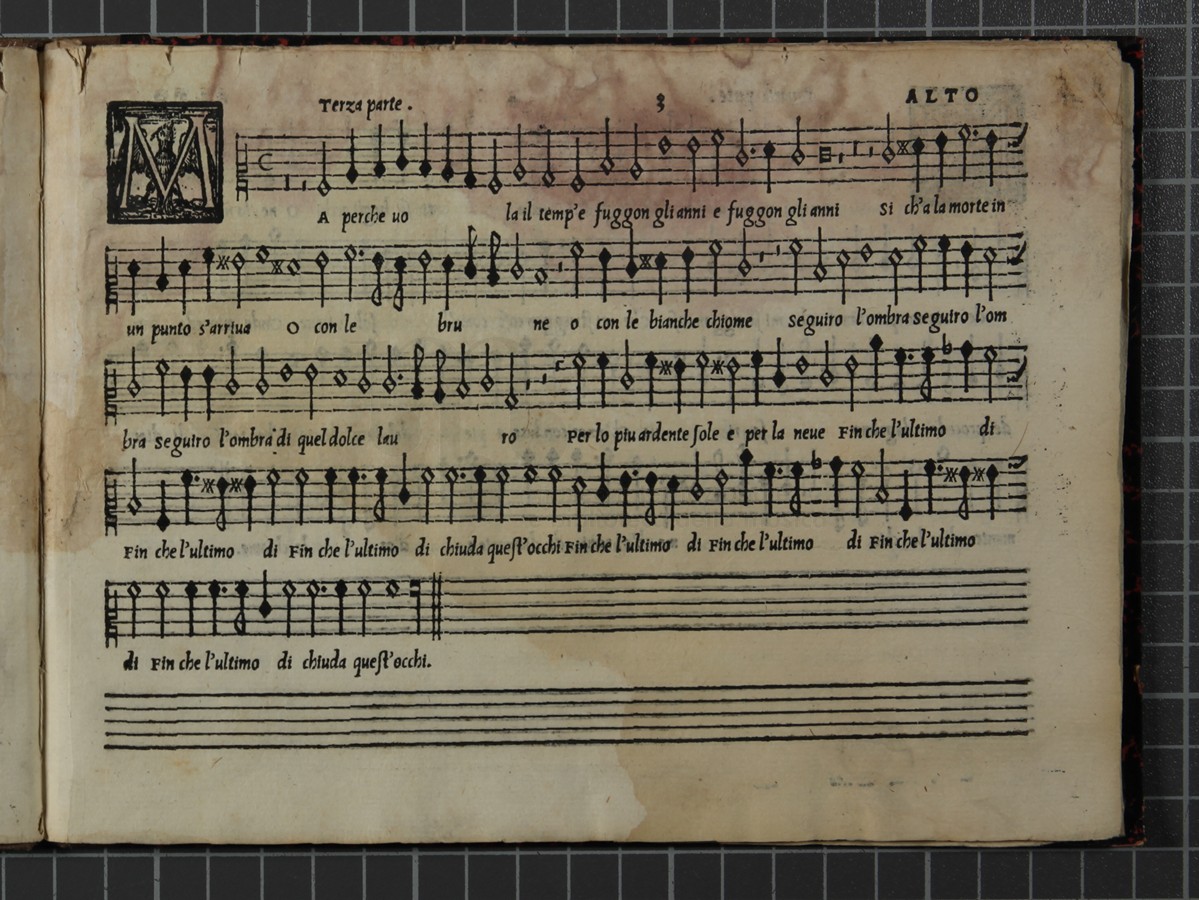 Terza parte. 3 ALTO
MA perche uo la il temp'e fuggon gli anni e fuggon gli anni Si ch'a la morte in
un punto s'arriua O con le bru ne o con le bianche chiome seguiro l'ombra seguiro l'om
bra seguiro l'ombra di quel dolce lau ro Per lo piu ardente ſole e per la neue Fin che l'ultimo di
Fin che l'ultimo di Fin che l'ultimo di chiuda queſt'occhi Fin che l'ultimo di Fin che l'ultimo di Fin che l'ultimo
di Fin che l'ultimo di chiuda queſt'occhi.